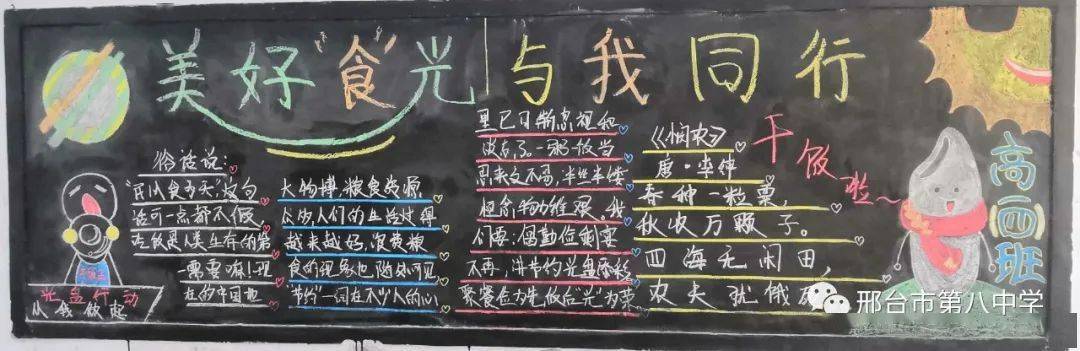 美好"食"光 与我同行
俗话说：
"民以食为天"，这句
话可一点都不假，
吃饭是人类生存的第
一需要嘛！现
在的中国地
大物博，粮食资源
人们的生活过得
越来越好，浪费粮
食的现象也随处可见
节约"一词在不少人的心
里已日渐忽视和
淡忘了。一粥一饭当
思来之不易，半丝半缕
恒念物力维艰。我
们要：倡勤俭剩宴
不再，讲节约光盘
聚餐
《悯农》
唐·李绅
春种一粒粟，
秋收万颗子。
四海无闲田，
农夫犹饿死
干饭啦～
高一四班
光盘行动
从我做起
邢台市第八中学